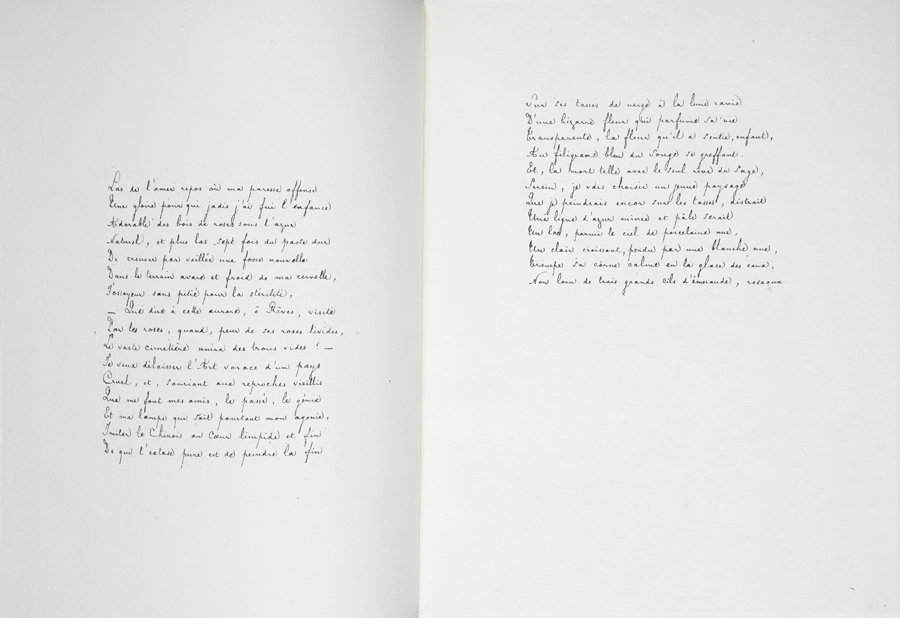 Las de l'amer repos où ma paresse offense
Une gloire pour qui jadis j'ai fui l'enfance
Adorable des bois de roses sous l'azur
Naturel, et plus las sept fois du pacte dur
De creuser par veillée une fosse nouvelle
Dans le terrain avare et froid de ma cervelle,
Fossoyeur sans pitié pour la stérilité,
— Que dire à cette aurore, ô Rêves, visité
Par les roses, quand, peur de ses roses livides,
Le vaste cimetière unira les trous vides ? —
Je veux délaisser l'Art vorace d'un pays
Cruel, et, souriant aux reproches vieillis
Que me font mes amis, le passé, le génie
Et ma lampe qui sait pourtant mon agonie,
Imiter le Chinois au cœur limpide et fin
De qui l'extase pure est de peindre la fin
Sur ses tasses de neige à la lune ravie
D'une bizarre fleur qui parfume sa vie
Transparente, la fleur qu'il a sentie, enfant,
Au filigrane bleu du songe se greffant.
Et, la mort telle avec le seul rêve du sage,
Serein, je vais choisir un jeune paysage
Que je peindrais encor sur les tasses, distrait
Une ligne d'azur mince et pâle serait
Un lac, parmi le ciel de porcelaine nue,
Un clair croissant, perdu par une blanche nue,
Trempe sa corne calme en la glace des eaux,
Non loin de trois grands cils d'émeraude, roseaux